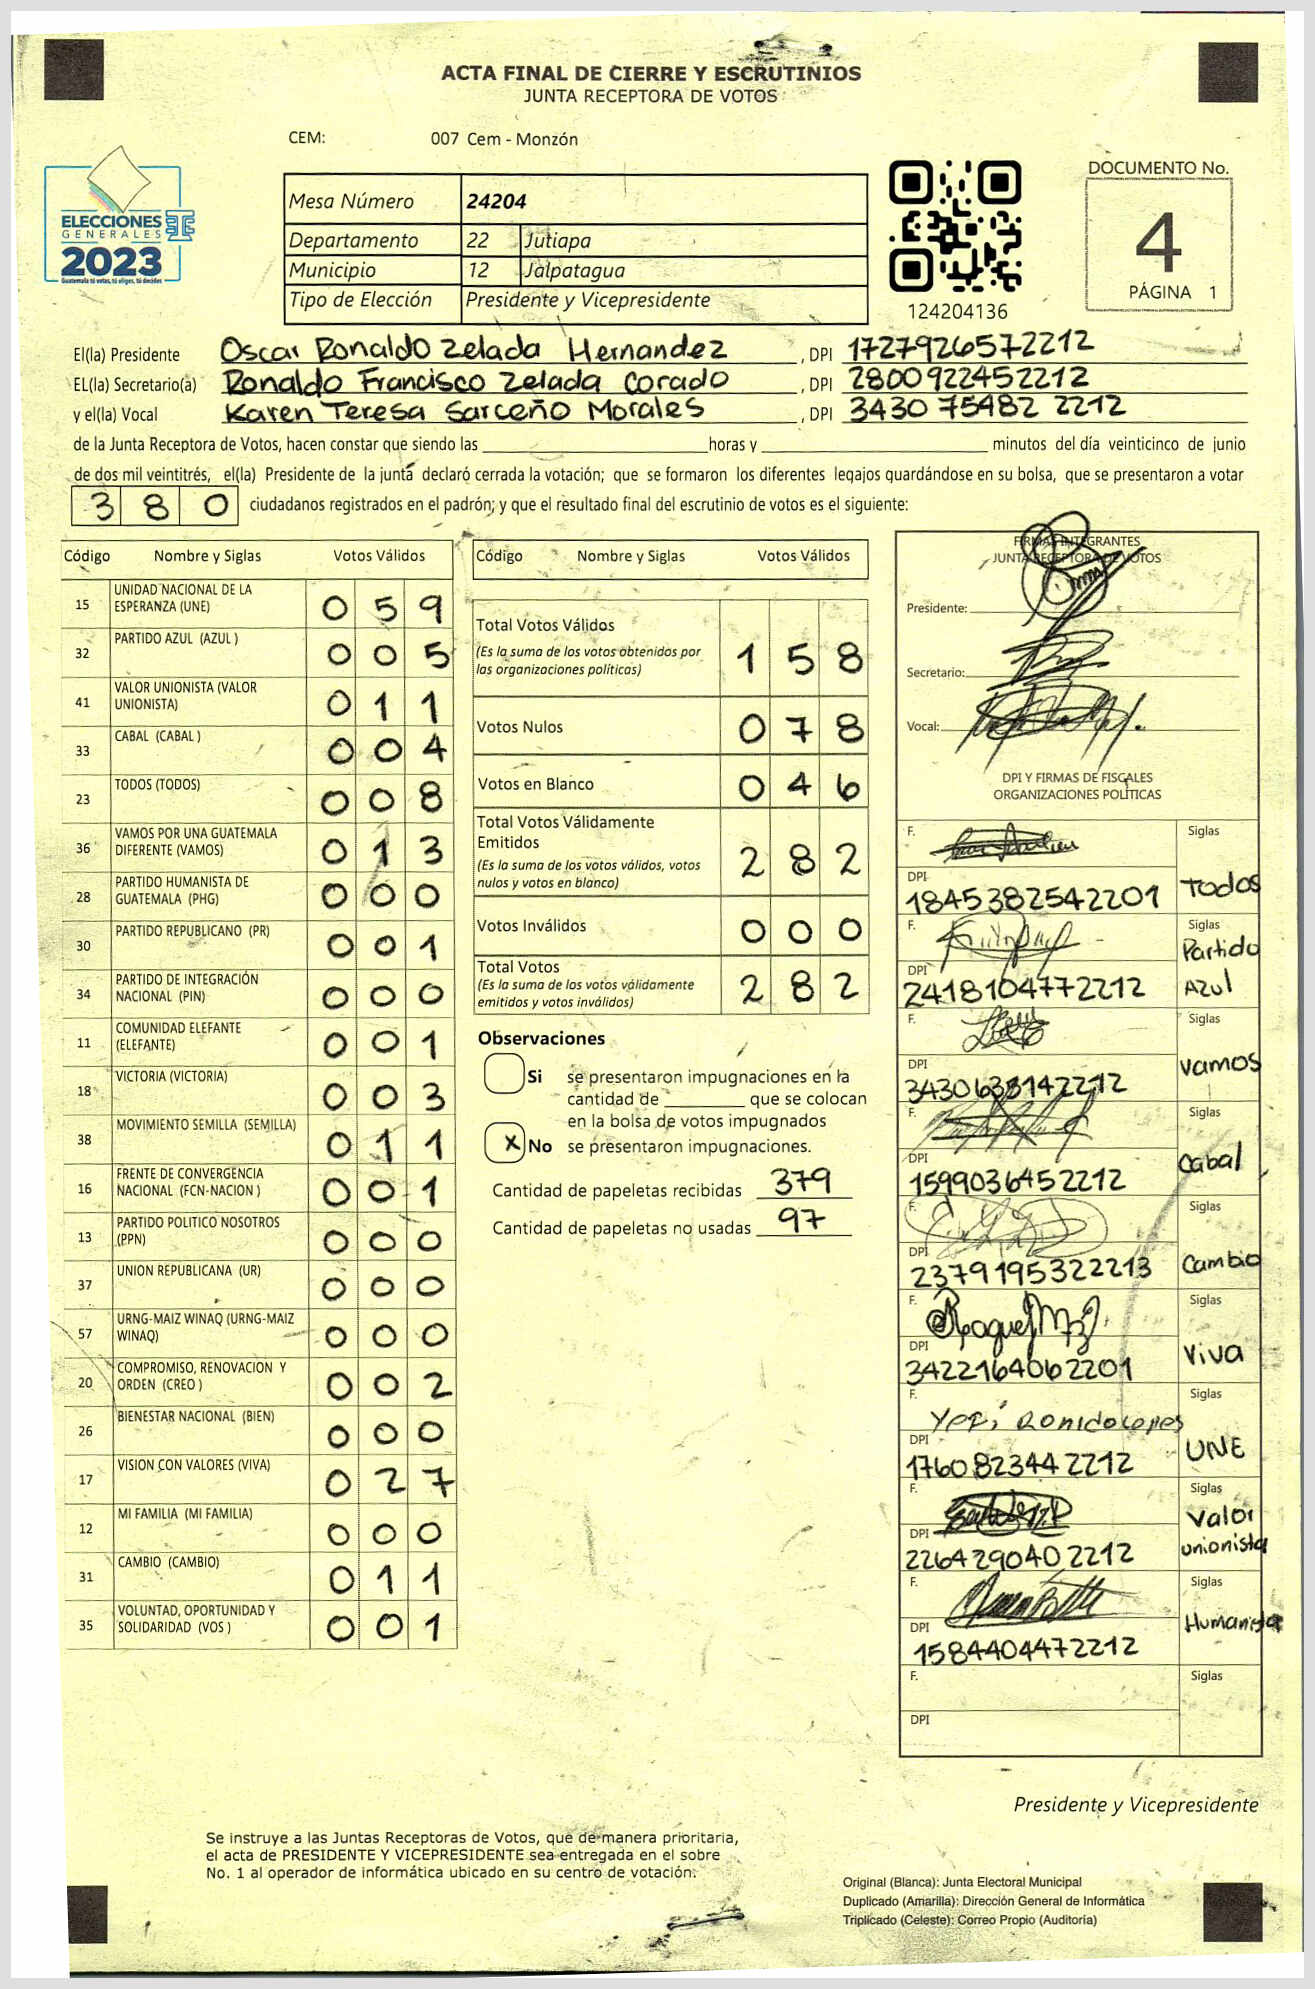 ACTA FINAL DE CIERRE Y ESCRUTINIOS
JUNTA RECEPTORA DE VOTOS
CEM: 007 Cem - Monzón
ELECCIONES
GENERALES
2023
Guatemala tú votas, tú eliges, tú decides
Mesa Número 24204
Departamento 22 Jutiapa
Municipio 12 Jalpatagua
Tipo de Elección Presidente y Vicepresidente
124204136
DOCUMENTO No.
4
PÁGINA 1
El(la) Presidente Oscar Ronaldo Zelada Hernandez, DPI 1727926572212
EL(la) Secretario(a) Ronaldo Francisco Zelada Corado, DPI 2800922452212
y el(la) Vocal Karen Teresa Sarceño Morales, DPI 3430 75482 2212
de la Junta Receptora de Votos, hacen constar que siendo las ____ horas y ____ minutos del día veinticinco de junio
de dos mil veintitrés, el(la) Presidente de la junta declaró cerrada la votación; que se formaron los diferentes legajos guardándose en su bolsa, que se presentaron a votar
380 ciudadanos registrados en el padrón; y que el resultado final del escrutinio de votos es el siguiente:
Código Nombre y Siglas Votos Válidos
15 UNIDAD NACIONAL DE LA ESPERANZA (UNE) 0 5 9
32 PARTIDO AZUL (AZUL ) 0 0 5
41 VALOR UNIONISTA (VALOR UNIONISTA) 0 1 1
33 CABAL (CABAL ) 0 0 4
23 TODOS (TODOS) 0 0 8
36 VAMOS POR UNA GUATEMALA DIFERENTE (VAMOS) 0 1 3
28 PARTIDO HUMANISTA DE GUATEMALA (PHG) 0 0 0
30 PARTIDO REPUBLICANO (PR) 0 0 1
34 PARTIDO DE INTEGRACIÓN NACIONAL (PIN) 0 0 0
11 COMUNIDAD ELEFANTE (ELEFANTE) 0 0 1
18 VICTORIA (VICTORIA) 0 0 3
38 MOVIMIENTO SEMILLA (SEMILLA) 0 1 1
16 FRENTE DE CONVERGENCIA NACIONAL (FCN-NACION ) 0 0 1
13 PARTIDO POLITICO NOSOTROS (PPN) 0 0 0
37 UNION REPUBLICANA (UR) 0 0 0
57 URNG-MAIZ WINAQ (URNG-MAIZ WINAQ) 0 0 0
20 COMPROMISO, RENOVACION Y ORDEN (CREO ) 0 0 2
26 BIENESTAR NACIONAL (BIEN) 0 0 0
17 VISION CON VALORES (VIVA) 0 2 7
12 MI FAMILIA (MI FAMILIA) 0 0 0
31 CAMBIO (CAMBIO) 0 1 1
35 VOLUNTAD, OPORTUNIDAD Y SOLIDARIDAD (VOS ) 0 0 1
Código Nombre y Siglas Votos Válidos
Total Votos Válidos 1 5 8
(Es la suma de los votos obtenidos por
las organizaciones políticas)
Votos Nulos 0 7 8
Votos en Blanco 0 4 6
Total Votos Válidamente
Emitidos 2 8 2
(Es la suma de los votos válidos, votos
nulos y votos en blanco)
Votos Inválidos 0 0 0
Total Votos 2 8 2
(Es la suma de los votos válidamente
emitidos y votos inválidos)
Observaciones
Si se presentaron impugnaciones en la
cantidad de ____ que se colocan
en la bolsa de votos impugnados
X No se presentaron impugnaciones.
Cantidad de papeletas recibidas 379
Cantidad de papeletas no usadas 97
FIRMAS INTEGRANTES
JUNTA RECEPTORA DE VOTOS
Presidente:
Secretario:
Vocal:
DPI Y FIRMAS DE FISCALES
ORGANIZACIONES POLÍTICAS
F. Siglas
DPI 1845382542201 Todos
F. Siglas
DPI 2418104772212 Partido Azul
F. Siglas
DPI 3430638142212 Vamos
F. Siglas
DPI 1599036452212 Cabal
F. Siglas
DPI 2379195322213 Cambio
F. Siglas
DPI 3422164062201 Viva
F. Siglas
DPI 1760823442212 UNE
F. Siglas
DPI 2264290402212 Valor unionista
F. Siglas
DPI 1584404472212 Humanista
F. Siglas
DPI
Presidente y Vicepresidente
Se instruye a las Juntas Receptoras de Votos, que de manera prioritaria,
el acta de PRESIDENTE Y VICEPRESIDENTE sea entregada en el sobre
No. 1 al operador de informática ubicado en su centro de votación.
Original (Blanca): Junta Electoral Municipal
Duplicado (Amarilla): Dirección General de Informática
Triplicado (Celeste): Correo Propio (Auditoría)